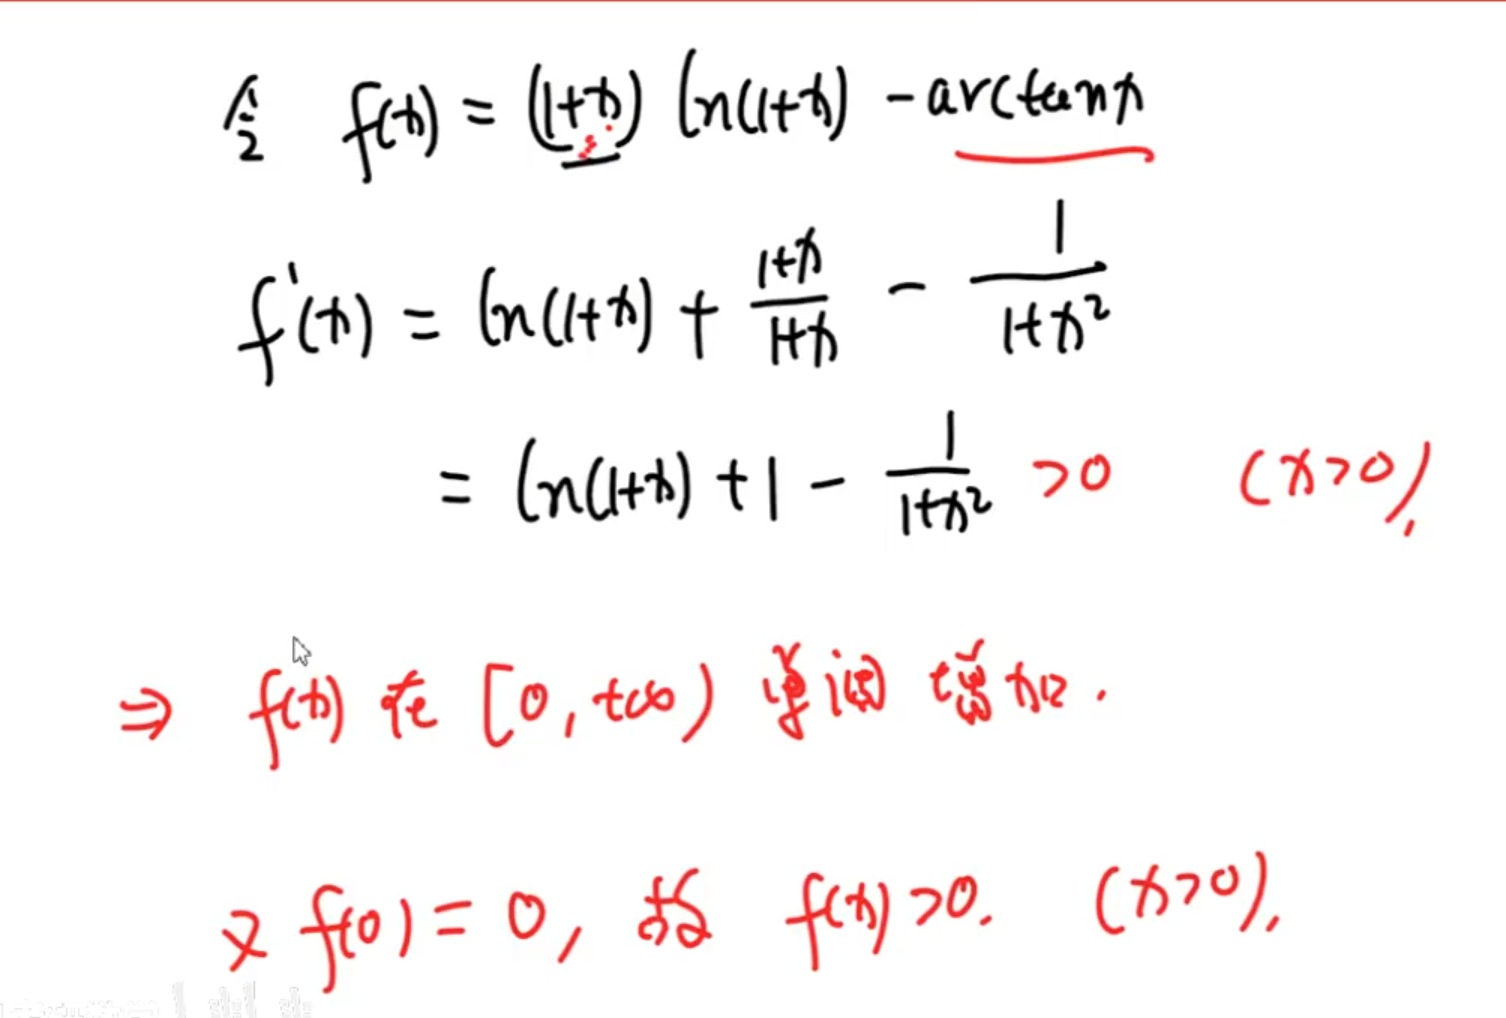 令 f(x) = (1+x) ln(1+x) - arctanx
f'(x) = ln(1+x) + \frac{1+x}{1+x} - \frac{1}{1+x²}
= ln(1+x) + 1 - \frac{1}{1+x²} >0 (x>0),
⇒ f(x) 在 [0, +∞) 单调增加.
又 f(0) = 0, 故 f(x) >0. (x>0),